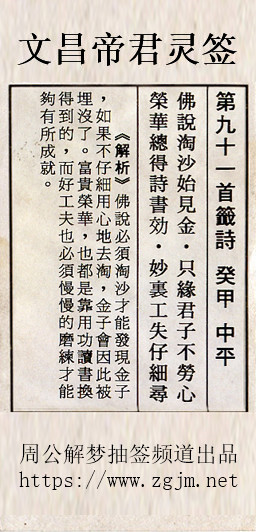 文昌帝君灵签
第九十一首籤詩 癸甲 中平
佛說淘沙始見金·只緣君子不勞心
榮華總得詩書効·妙裏工夫仔細尋
《解析》佛說必須淘沙才能發現金子
，如果不仔細用心地去淘，金子會因此被
埋沒了。富貴榮華，也都是靠用功讀書換
得到的，而好工夫也必須慢慢的磨練才能
夠有所成就。
周公解梦抽签频道出品
https://www.zgjm.net